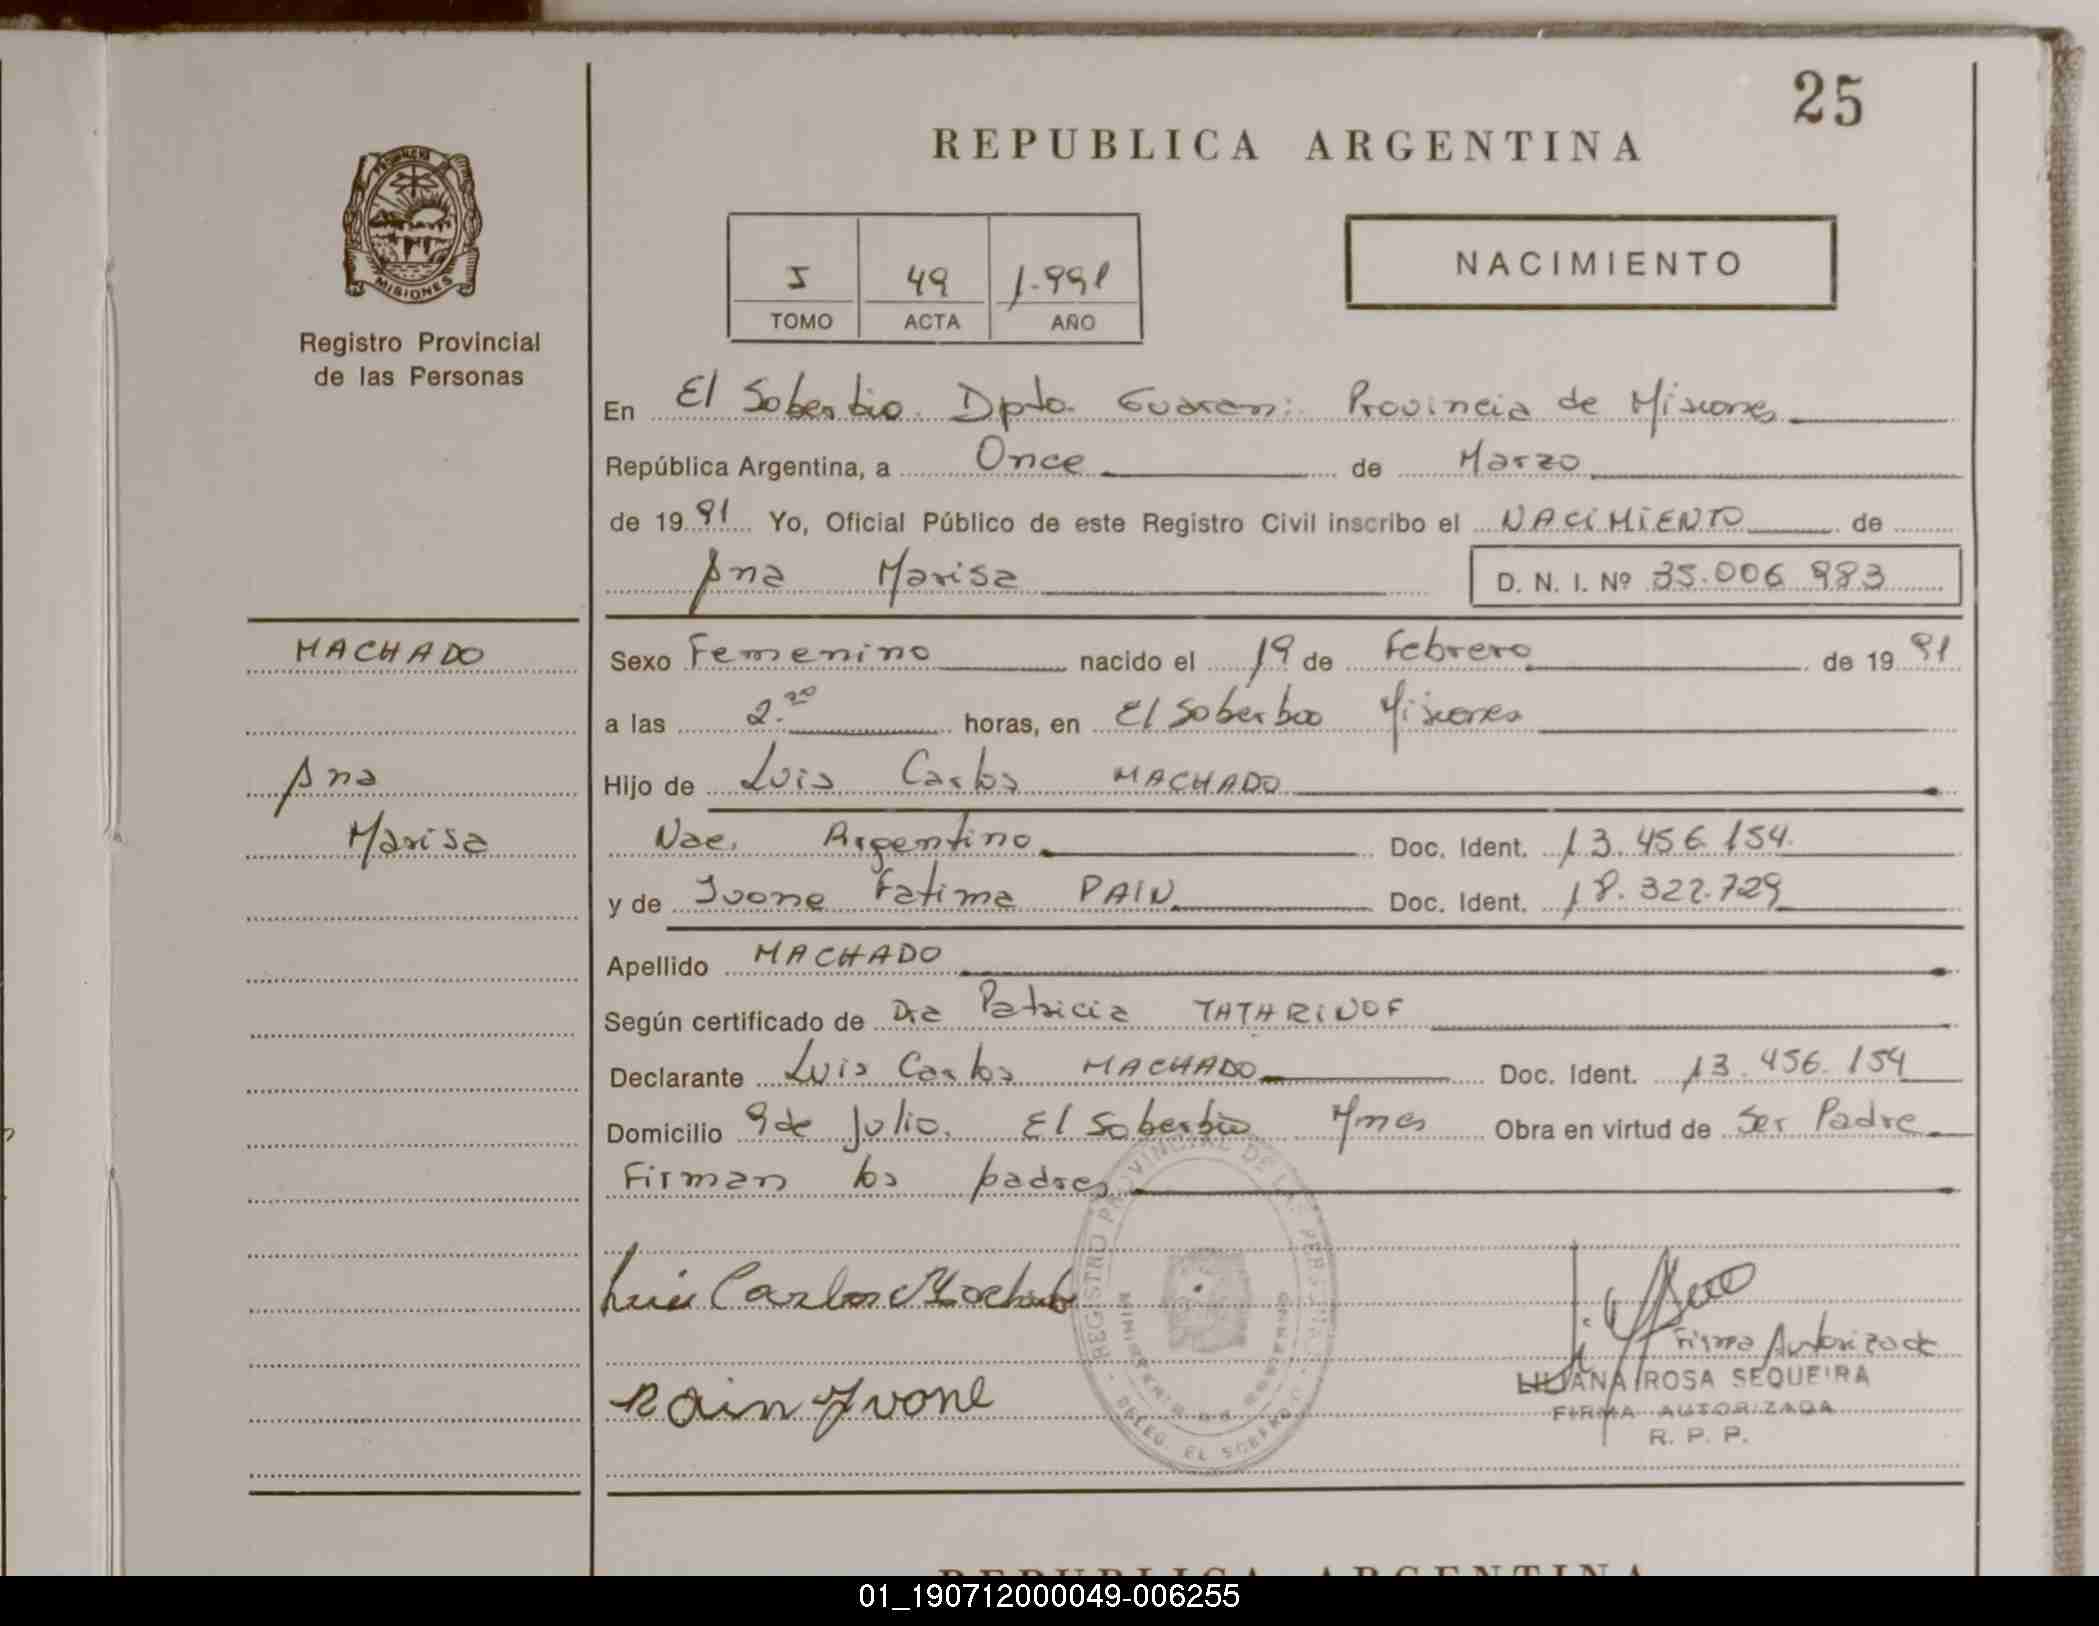 25
REPUBLICA ARGENTINA
PROVINCIA
MISIONES
Registro Provincial
de las Personas
I 49 1.991
TOMO ACTA AÑO
NACIMIENTO
En El Soberbio Dpto. Guarani Provincia de Misiones
República Argentina, a Once de Marzo
de 1991 Yo, Oficial Público de este Registro Civil inscribo el NACIMIENTO de
Ana Marisa D. N. I. Nº 35.006 983
MACHADO
Ana
Marisa
Sexo Femenino nacido el 19 de Febrero de 1991
a las 2.30 horas, en El Soberbio Misiones
Hijo de Luis Carlos MACHADO
Nac. Argentino Doc. Ident. 13.456.154.
y de Ivone Fatima PAIN Doc. Ident. 18.322.729
Apellido MACHADO
Según certificado de Dra Patricia TATARINOF
Declarante Luis Carlos MACHADO Doc. Ident. 13.456.154
Domicilio 9 de Julio. El Soberbio Mnes Obra en virtud de Ser Padre
Firman los padres
REGISTRO PROVINCIAL DE LAS PERSONAS
DELEG. EL SOBERBIO
Luis Carlos Machado
Pain Yvone
Firma Autorizada
LILIANA ROSA SEQUEIRA
FIRMA AUTORIZADA
R. P. P.
REPUBLICA ARGENTINA
01_190712000049-006255